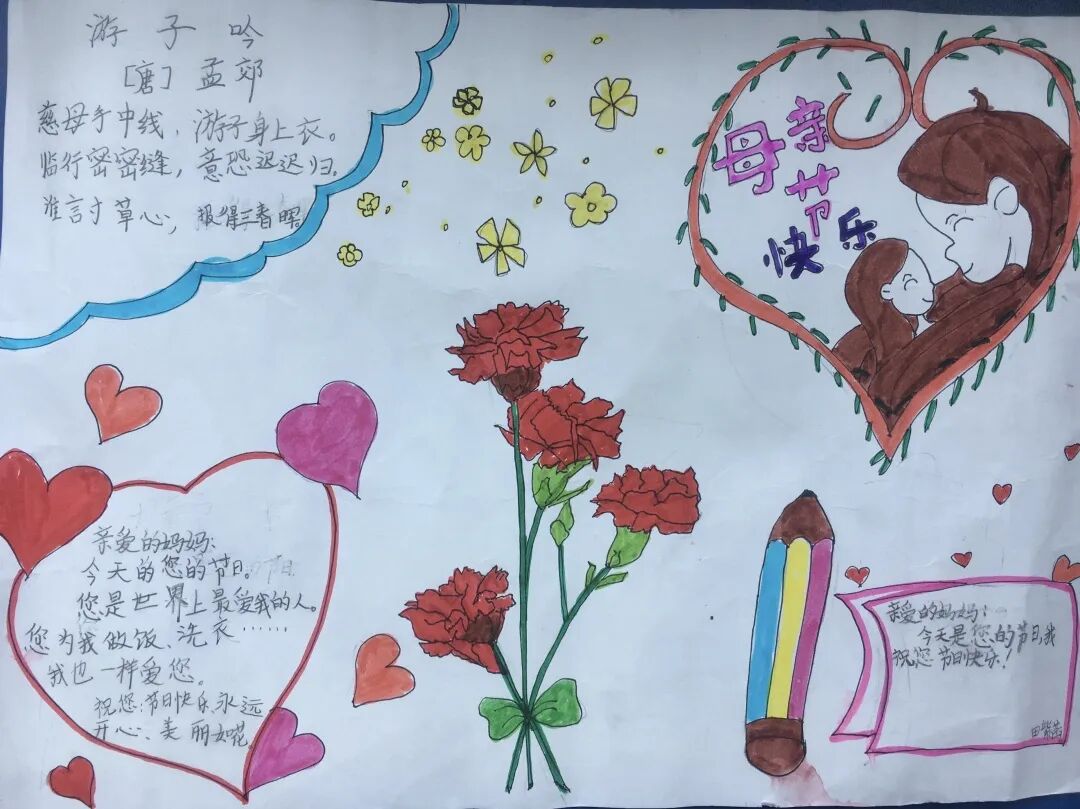 游子吟
[唐] 孟郊
慈母手中线，游子身上衣。
临行密密缝，意恐迟迟归。
谁言寸草心，报得三春晖。
母亲节
快乐
亲爱的妈妈：
今天的您的节日。
您是世界上最爱我的人。
您为我做饭、洗衣……
我也一样爱您。
祝您:节日快乐,永远
开心、美丽如花
亲爱的妈妈：
今天是您的节日,我
祝您节日快乐！